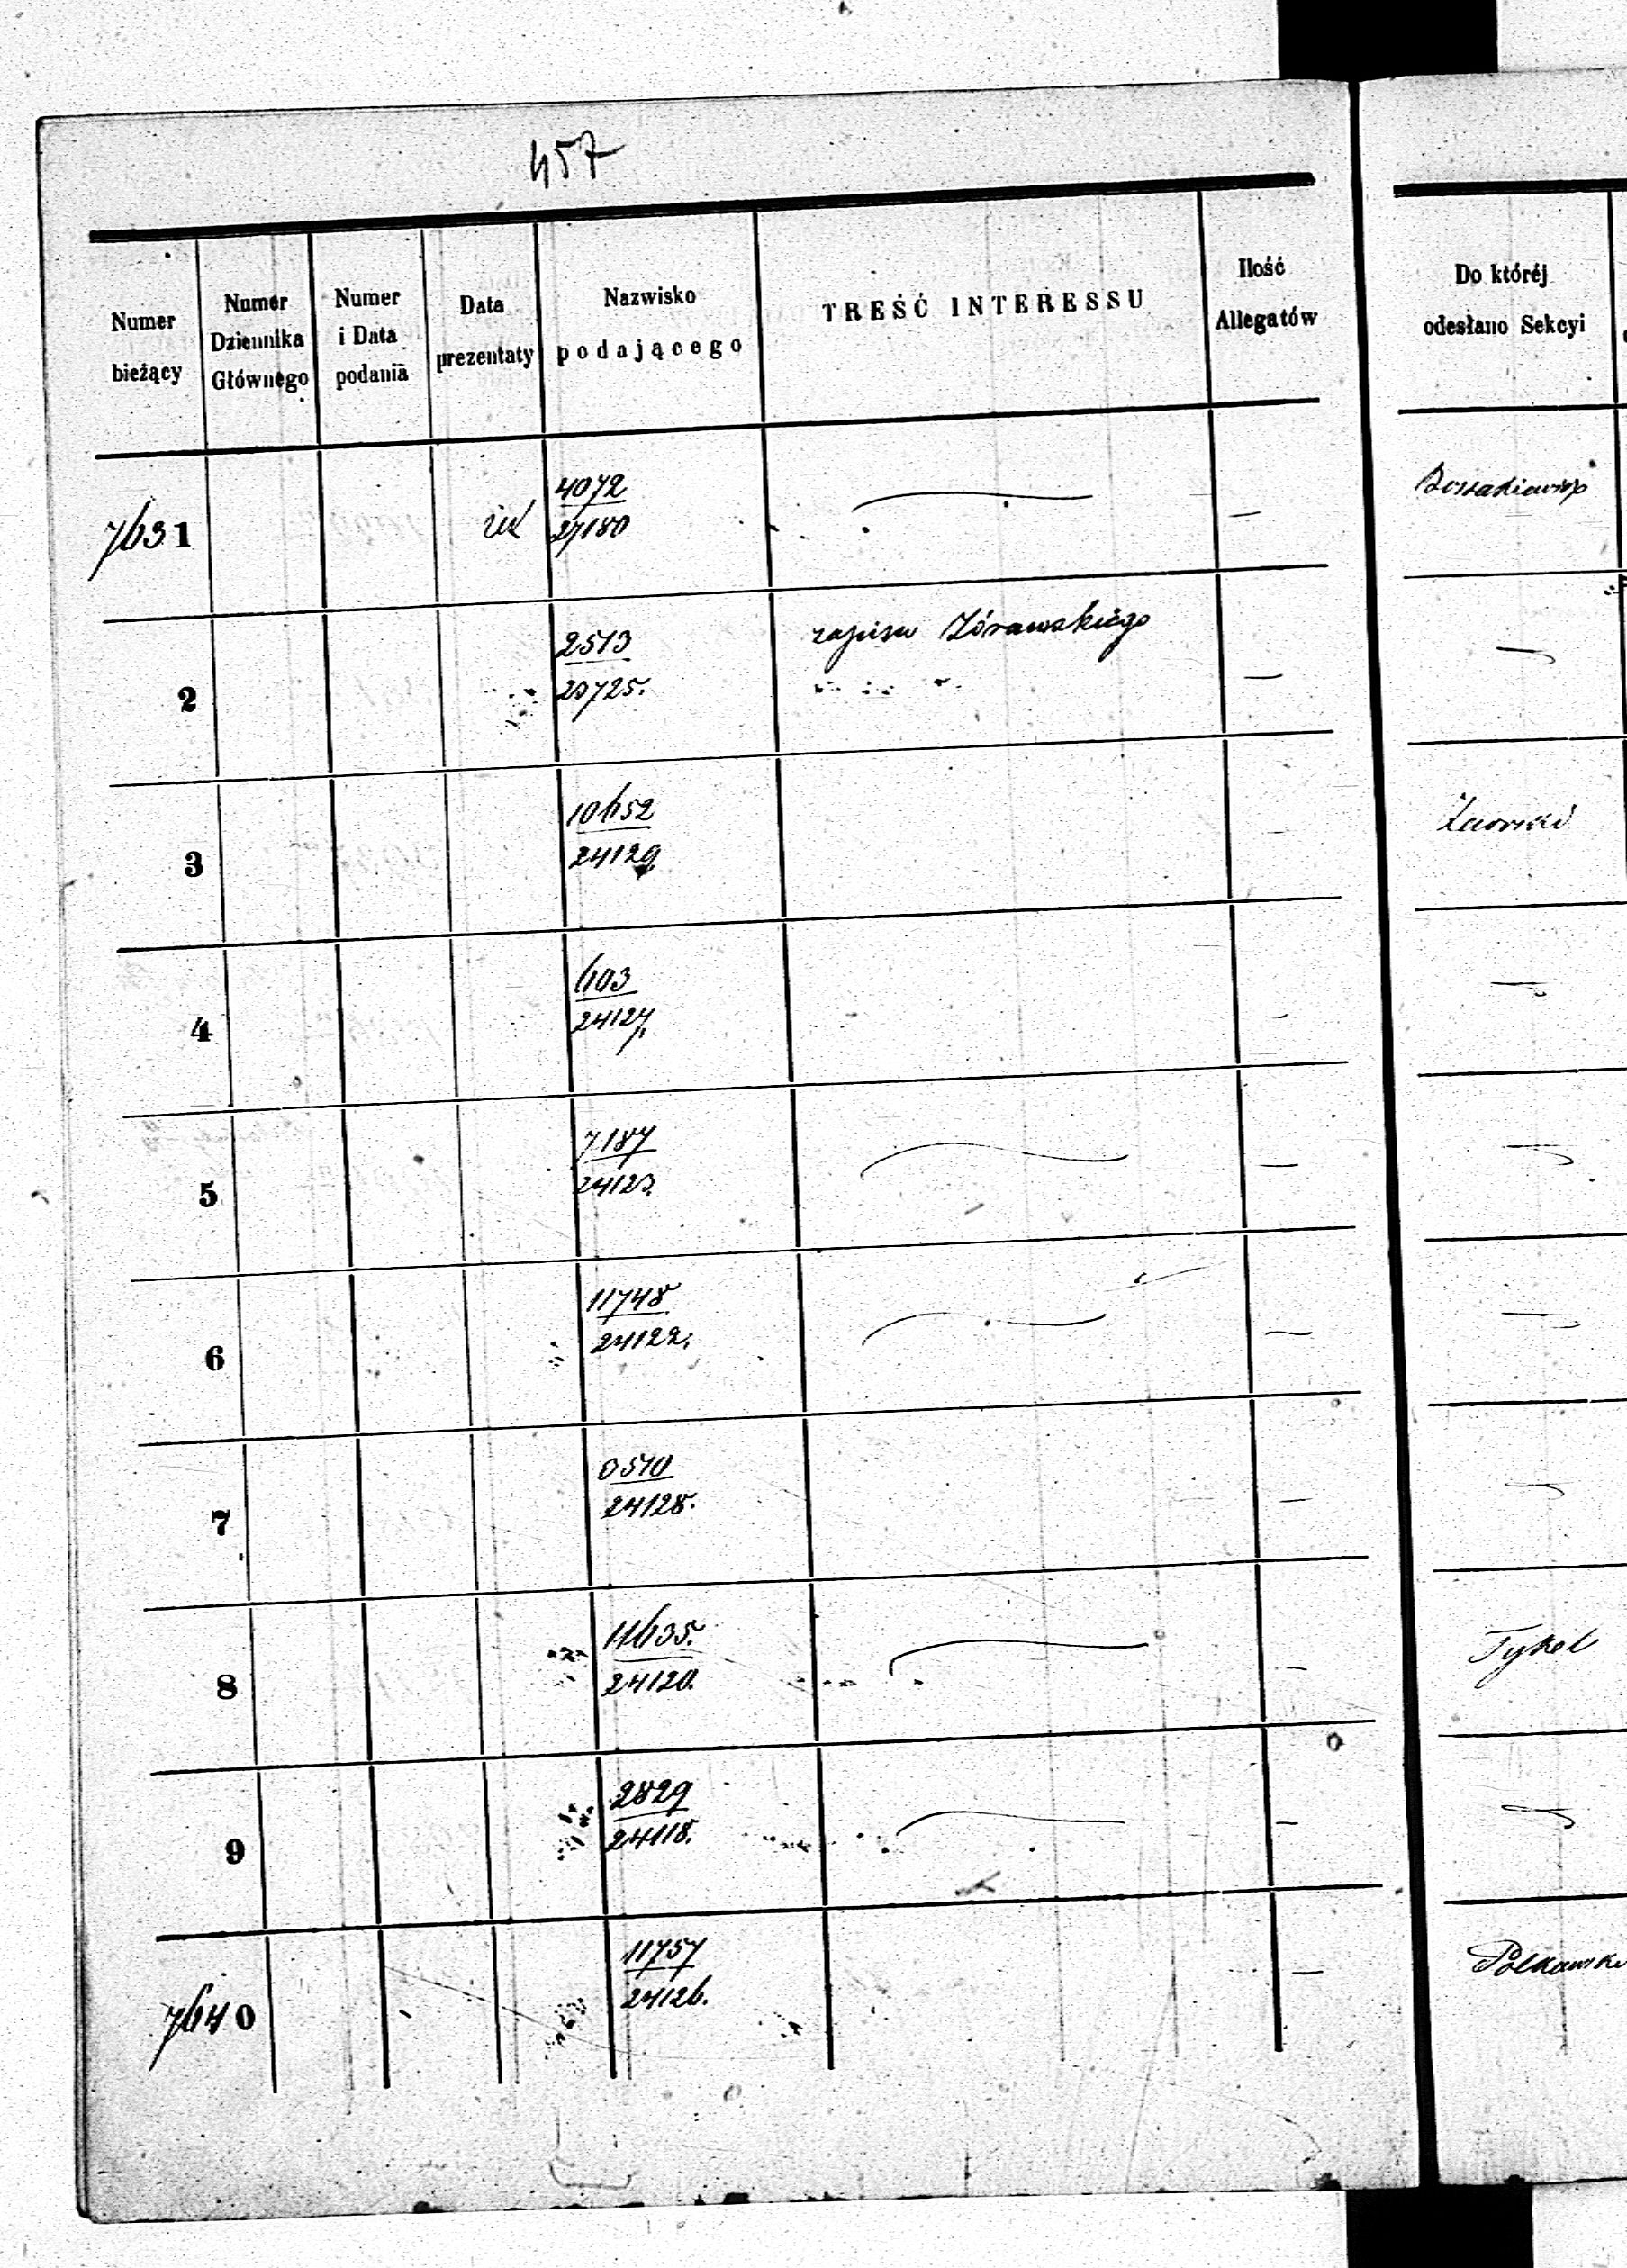 457
Numer bieżący
Numer Dziennika Głównego
Numer i Data podania
Data prezentaty
Nazwisko podającego
TREŚĆ INTERESSU
Ilość Allegatów
Do któréj odesłano Sekcyi
7631 4072 —
27180
2 2573 zapisu Żórawskiego —
23725.
3 10652
24129.
4 603
24127.
5 7187 —
24123.
6 11748 —
24122.
7 3570 —
24128.
8 11635. — Tykel
24120.
9 2829 —
24118.
7640 11757 —
24126.